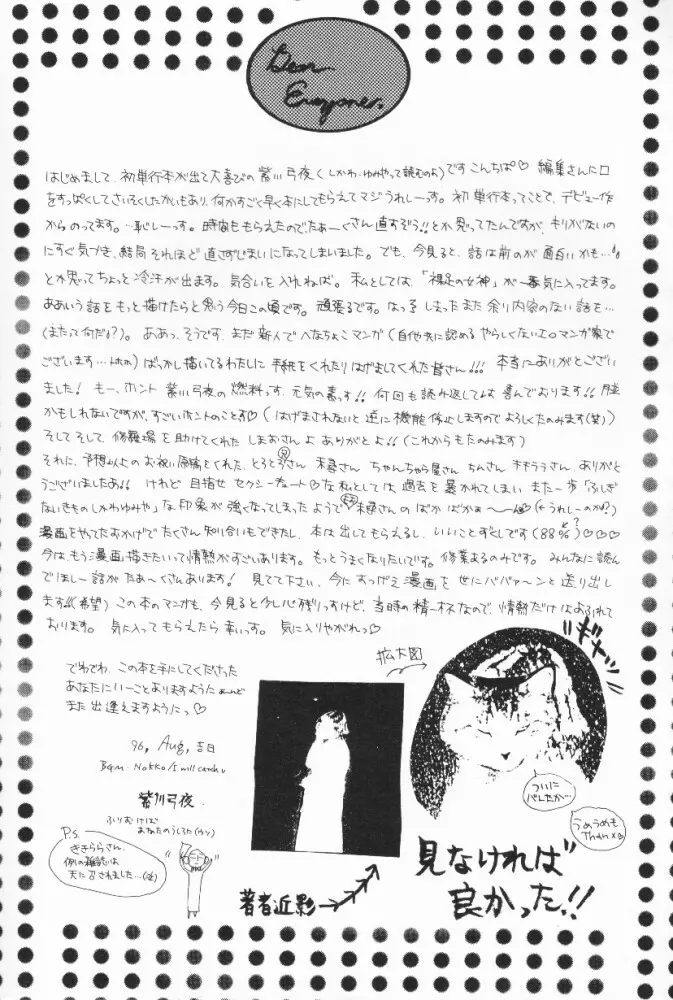 Dear
Everyone.
はじめまして、初単行本が出て大喜びの紫川弓夜(しかわゆみやって読むのよ)ですこんちぱ♡ 編集さんに口
をすっぱくしてさいそくしたかいもあり、何かすごく早く本にしてもらえてマジうれしーっす。初単行本ってことで、デビュー作
からのってます。恥しーっす。時間ももらえたのでたぁーくさん直すぞう!!とか思ってたんですが、キリがないの
にすぐ気づき、結局それほど直さずじまいになってしまいました。でも、今見ると、話は前のが面白いかも…
とか思ってちょっと冷汗が出ます。気合いを入れねば。私としては、「裸足の女神」が一番気に入ってます。
ああいう話をもっと描けたらと思う今日この頃です。頑張るです。はっ しまったまた余り内容のない話を…
(またって何だ?)。ああっ、そうです、まだ新人でへなちょこマンガ(自他共に認めるやらしくないエロマンガ家で
ございます…ホホホ)ばっかし描いてるわたしに手紙をくれたりはげましてくれた皆さん!!! 本当にありがとござい
ました! もー、ホント 紫川弓夜の燃料っす、元気の素っす!! 何回も読み返しては喜んでおります!!
かもしれないですが、すごいホントのことす♡(はげまされないと逆に機能停止しますのでよろしくたのみます(笑))
そしてそして、修羅場を助けてくれた しまおさんよ ありがとよ!!(これからもたのみます)
それに、予想以上のお祝い原稿をくれた、とろとろさん 木尋さん ちゃんちゃら屋さん ちんさん キキララさん、ありがと
うございましたあ!! けれど 目指せ セクシーキュート♡な私としては、過去を暴かれてしまい また一歩「ふしぎ
ないきものしかわゆみや」な印象が強くなってしまったようで 木尋さんのばか ばかぁ〜ん(←うれしーのか?)
漫画をやってたおかげでたくさん知り合いもできたし、本は出してもらえるし、いいことずくしです(88%)♡♡♡ と?
今はもう漫画描きたいって情熱がすごいあります。もっとうまくなりたいです。修業あるのみです。みんなに読ん
でほしー話がたぁーくさんあります! 見てて下さい、今にすっげえ漫画を世にババァーンと送り出し
ます!!(希望) この本のマンガも、今見ると少し心残りっすけど、当時の精一杯なので、情熱だけはあふれて
おります。気に入ってもらえたら幸いっす。気に入りやがれっ♡
でわでわ、この本を手にしてくださった
あなたにいーことありますように
また出逢えますようにっ♡
96, Aug, 吉日
B.G.M Nokko/I will catch u
紫川弓夜
ふりむけば
あなたのうしろた(ウソ)
P.S.
ききららさん、
例の雑誌は
天に召されました…(泣)
著者近影
拡大図
ギャー
ついに
バレたか…
うめうめも
Thanx
見なければ
良かった!!